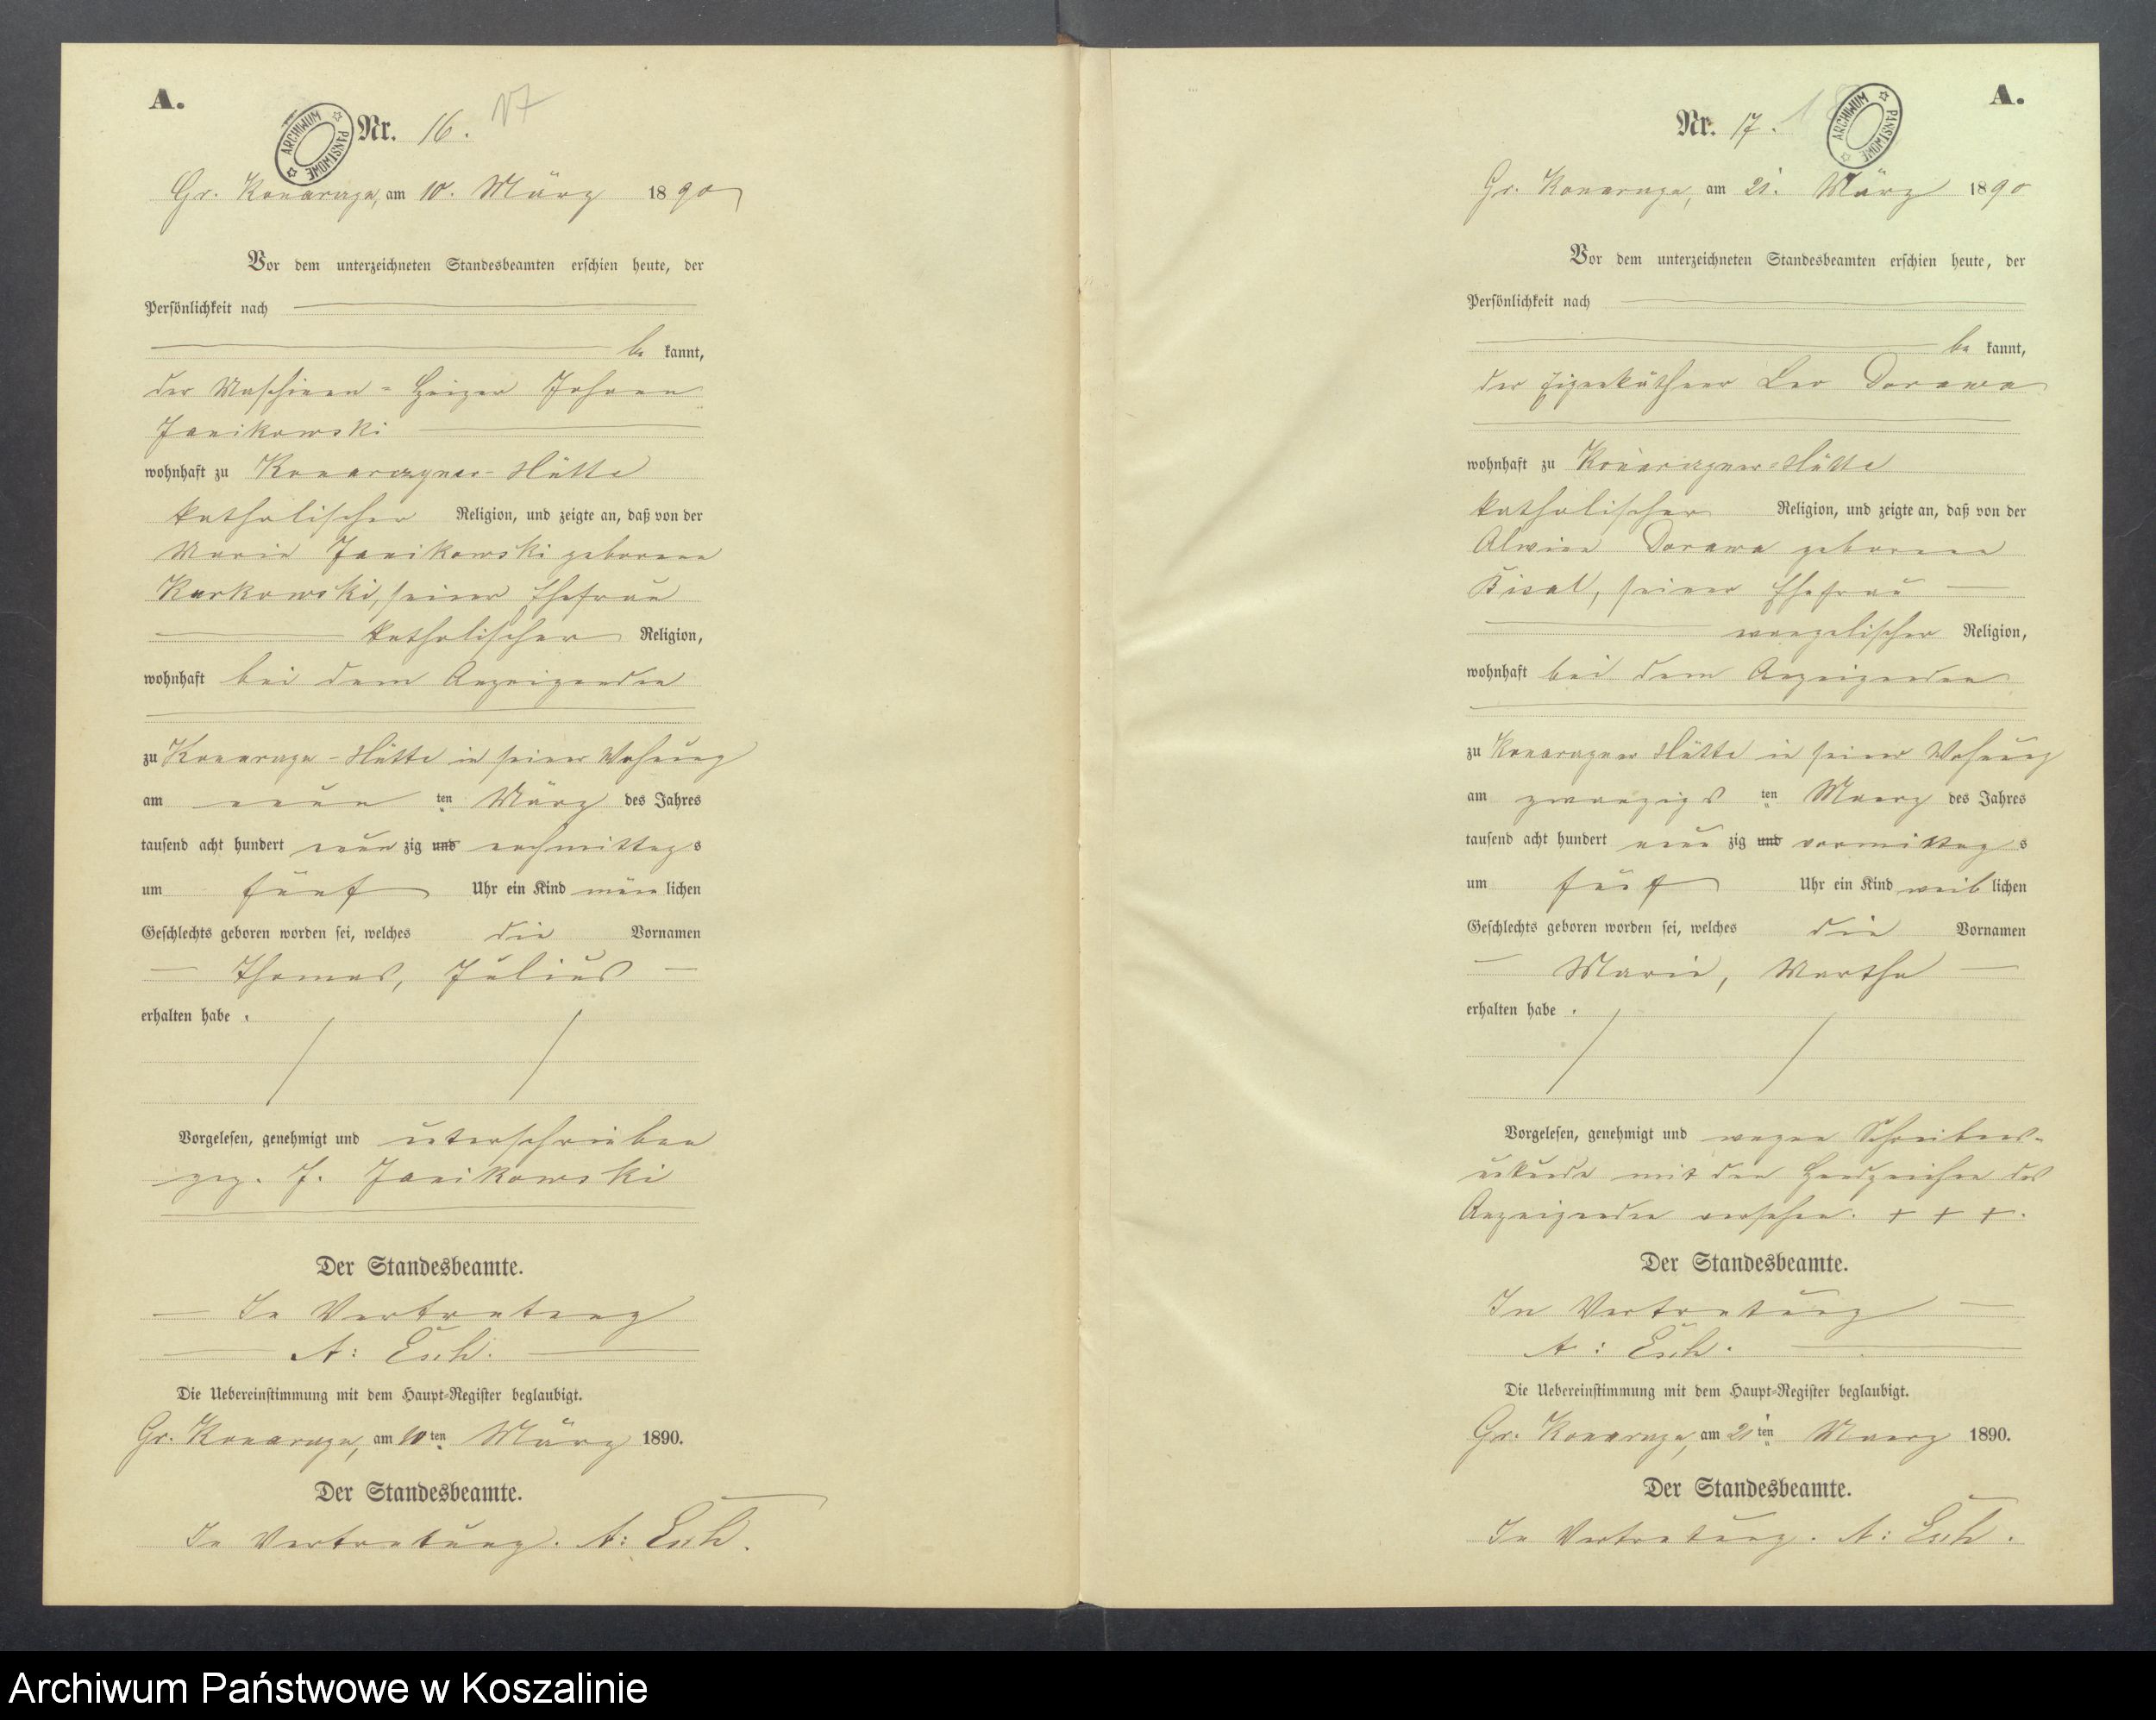 A.
ARCHIWUM PAŃSTWOWE
Nr. 16. 17
Gr. Konarczyn, am 10. März 1890
Vor dem unterzeichneten Standesbeamten erschien heute, der
Persönlichkeit nach
be kannt,
der Maschinen-Heizer Johann
Janikowski
wohnhaft zu Konarczyner-Hütte
katholischer Religion, und zeigte an, daß von der
Maria Janikowski geborene
Kurkowski, seiner Ehefrau
katholischer Religion,
wohnhaft bei dem Anzeigenden
zu Konarczyn-Hütte in seiner Wohnung
am neun ten März des Jahres
tausend acht hundert neun zig und nachmittags
um fünf Uhr ein Kind männ lichen
Geschlechts geboren worden sei, welches die Vornamen
Thomas, Julius
erhalten habe.
Vorgelesen, genehmigt und unterschrieben
gez. J. Janikowski
Der Standesbeamte.
In Vertretung
A: Esch.
Die Uebereinstimmung mit dem Haupt-Register beglaubigt.
Gr. Konarczyn, am 10ten März 1890.
Der Standesbeamte.
In Vertretung. A: Esch.
A.
ARCHIWUM PAŃSTWOWE
Nr. 17.
Gr. Konarczyn, am 21. März 1890
Vor dem unterzeichneten Standesbeamten erschien heute, der
Persönlichkeit nach
be kannt,
der Eigenkäthner Leo Dorawa
wohnhaft zu Konarczyner-Hütte
katholischer Religion, und zeigte an, daß von der
Alwine Dorawa geborene
seiner Ehefrau
evangelischer Religion,
wohnhaft bei dem Anzeigenden
zu Konarczyner Hütte in seiner Wohnung
am zwanzigs ten Maerz des Jahres
tausend acht hundert neun zig und vormittag s
um fünf Uhr ein Kind weib lichen
Geschlechts geboren worden sei, welches die Vornamen
Marie, Martha
erhalten habe.
Vorgelesen, genehmigt und wegen Schreibens-
unkunde mit den Handzeichen des
Anzeigenden versehen. + + +.
Der Standesbeamte.
In Vertretung
A: Esch.
Die Uebereinstimmung mit dem Haupt-Register beglaubigt.
Gr. Konarczyn, am 21ten Maerz 1890.
Der Standesbeamte.
In Vertretung. A: Esch.
Archiwum Państwowe w Koszalinie